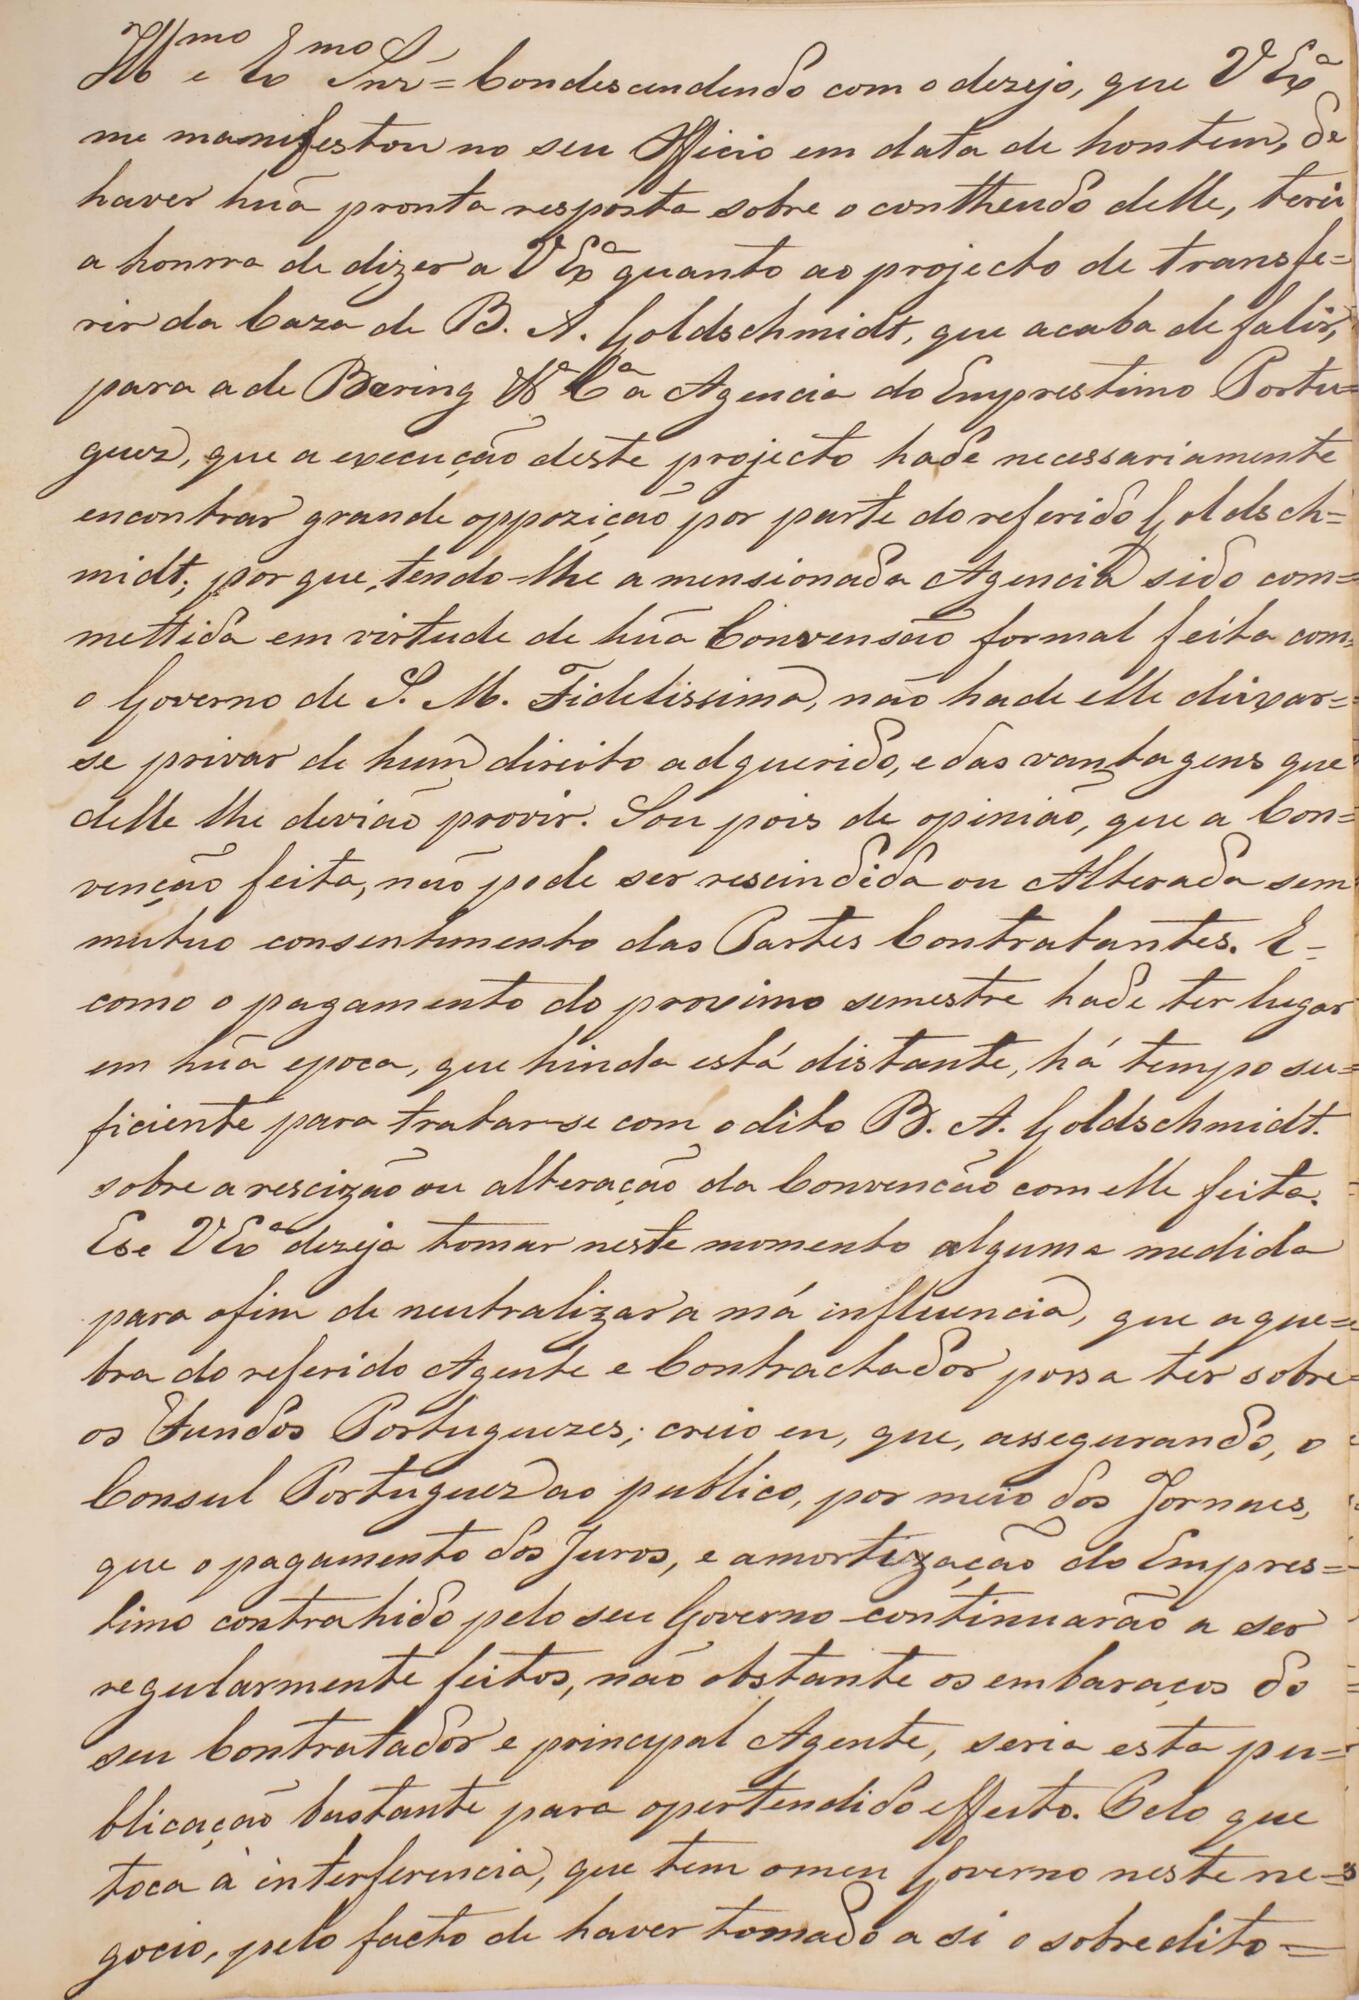 Ill.mo e Ex.mo Snr.= Condescendendo com o dezejo, que V Ex.a
me manifestou no seu Officio em data de hontem, de
haver huã pronta resposta sobre o conthendo delle, terei
a honrra de dizer a V Ex.a quanto ao projecto de transfe=
rir da Caza de B. A. Goldschmidt, que acaba de falir,
para a de Baring Ir. C.a a Agencia do Emprestimo Portu=
guez, que a execução deste projecto hade necessariamente
encontrar grande oppozição por parte do referido Goldsch=
midt; por que, tendo-lhe a mensionada Agencia sido com=
mettida em virtude de huã Convensão formal feita com
o Governo de S. M. Fidelissima, não hade elle deixar=
se privar de hum direito adquerido, e das vantagens que
delle lhe devião provir. Sou pois de opinião, que a Con=
venção feita, não pode ser rescindida ou Alterada sem
mutuo consentimento das Partes Contratantes. E=
como o pagamento do proximo semestre hade ter lugar
em huã epoca, que hinda está distante, há tempo su=
ficiente para tratar-se com o dito B. A. Goldschmidt.
sobre a rescizão ou alteração da Convenção com elle feita.
E se V Ex.a dezeja tomar neste momento alguma medida
para o fim de neutralizar a má influencia, que a que=
bra do referido Agente e Contractador possa ter sobre
os Fundos Portuguezes; creio eu, que, assegurando, o
Consul Portuguez ao publico, por meio dos Jornaes,
que o pagamento dos Juros, e amortização do Empres=
timo contrahido pelo seu Governo continuarão a ser
regularmente feitos, não obstante os embaraços do
seu Contratador e principal Agente, seria esta pu=
blicação bastante para o pertendido effeito. Pelo que
toca à interferencia, que tem o meu Governo neste ne=
gocio, pelo facto de haver tomado a si o sobredito=